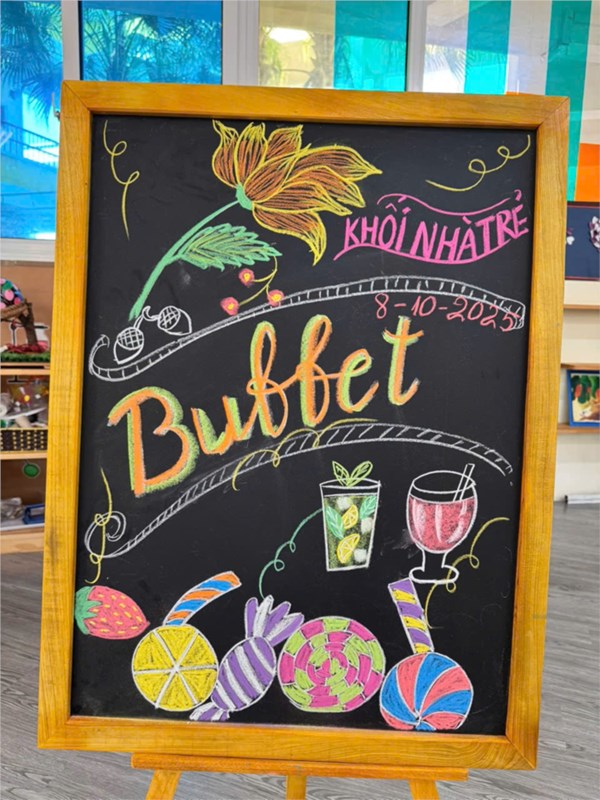 KHỐI NHÀ TRẺ
8-10-2025
Buffet